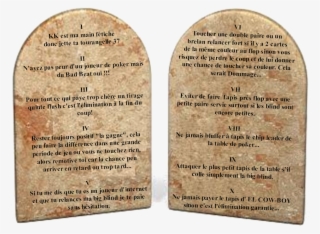 I
KK est ma main fétiche
donc jette ta tourangelle J7
II
N'ayez pas peur d'un joueur de poker mais
du Bad Beat oui !!!
III
Pour tout ce qui paye trop chère un tirage
quinte flush c'est l'élimination à la fin du
coup!
IV
Rester toujours positif "la gagne", cela
peu faire la différence dans une grande
période de jeu ou vous ne touchez rien,
alors remotive toi car la chance peu
arriver en retard ou trop tard...
V
Si tu me dis que tu es un joueur d'internet
et que tu relances ma big blind je te paie
sans hésitation.
VI
Toucher une double paire ou un
brelan relancer fort si Il y a 2 cartes
de la même couleur au flop sinon vous
risquez de perdre le coup et de lui donner
une chance de toucher sa couleur. Cela
serait Dommage...
VII
Éviter de faire Tapis pré flop avec une
petite paire servie surtout si les blind sont
encore petites.
VIII
Ne jamais bluffer à tapis le chip leader de
la table de poker...
IX
Attaquer le plus petit tapis de la table s'il
colle simplement la big blind.
X
Ne jamais payer le tapis d' EL COW-BOY
sinon c'est l'élimination garantie...